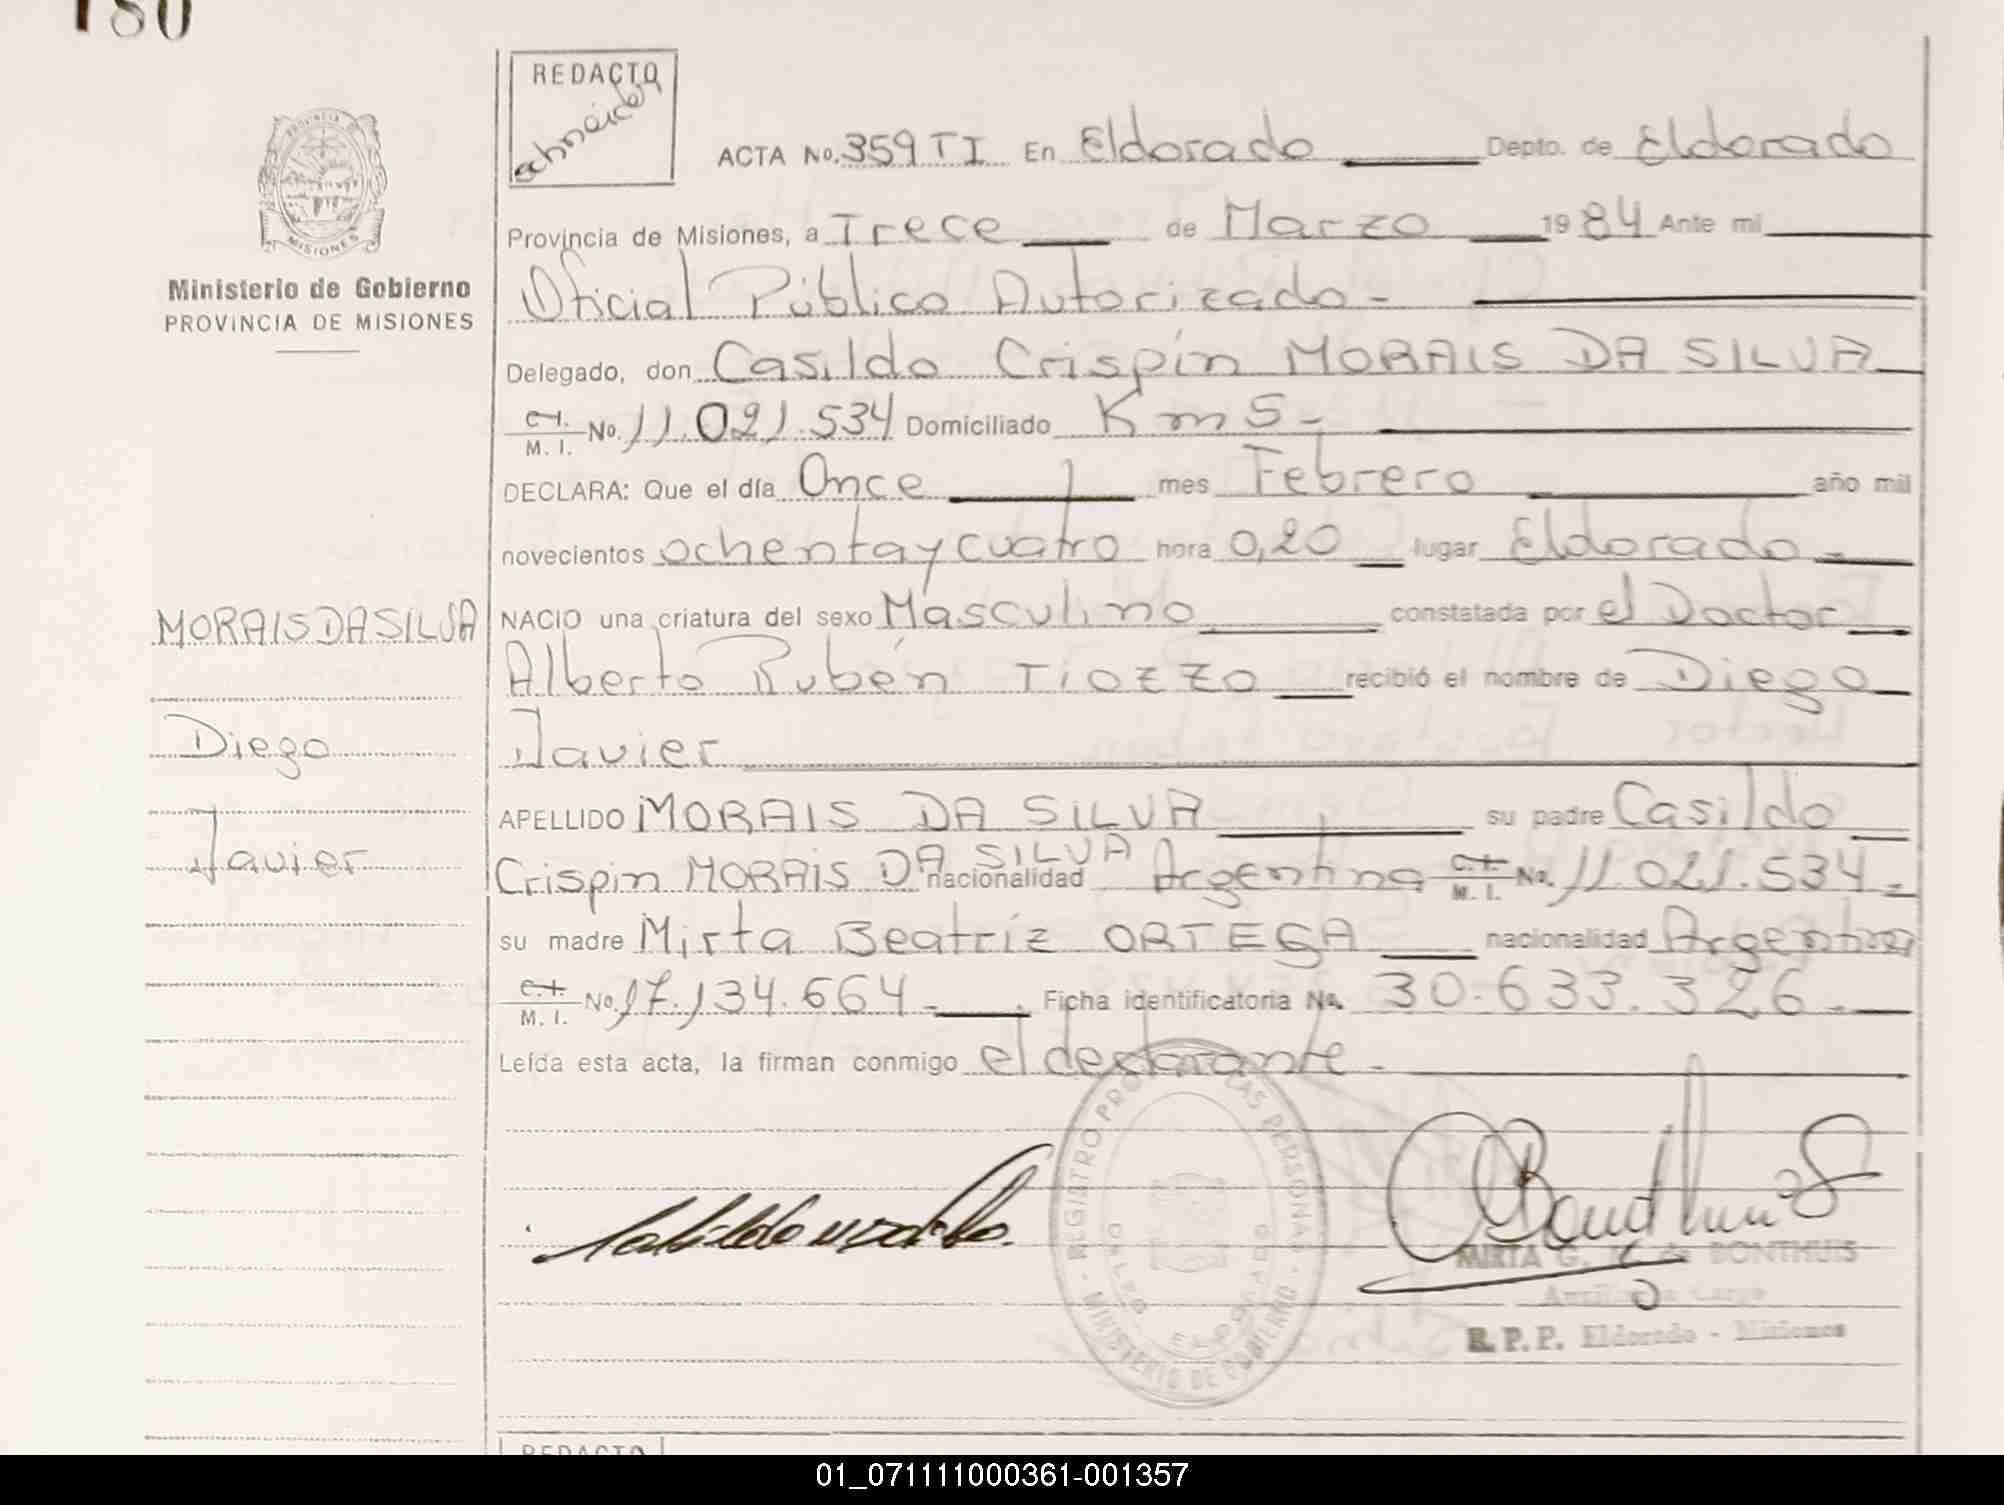 180
REDACTO
Schneider
ACTA No. 359 TI En Eldorado Depto. de Eldorado
Provincia de Misiones, a Trece de Marzo 1984 Ante mi
Oficial Público Autorizado-
Delegado, don Casildo Crispín MORAIS DA SILVA
C.I. M. I. No. 11.021.534 Domiciliado Km 5-
DECLARA: Que el día Once mes Febrero año mil
novecientos ochenta y cuatro hora 0,20 lugar Eldorado-
NACIO una criatura del sexo Masculino constatada por el Doctor
Alberto Rubén TIOZZO recibió el nombre de Diego
Javier
APELLIDO MORAIS DA SILVA su padre Casildo
Crispin MORAIS DA SILVA nacionalidad Argentina C.I. M. I. No. 11.021.534-
su madre Mirta Beatríz ORTEGA nacionalidad Argentina
C.I. M. I. No. 17.134.664- Ficha identificatoria No. 30.633.326-
Leída esta acta, la firman conmigo el declarante-
PROVINCIA DE
MISIONES
Ministerio de Gobierno
PROVINCIA DE MISIONES
MORAIS DA SILVA
Diego
Javier
REGISTRO PROV. LAS PERSONAS - MINISTERIO DE GOBIERNO
ELDORADO
MIRTA G. de BONTHUIS
R. P. P. Eldorado - Misiones
REDACTO
01_071111000361-001357